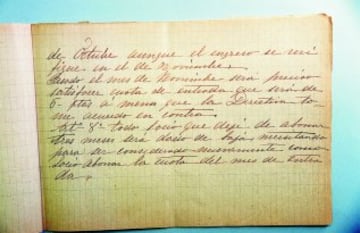 de Octubre aunque el ingreso se veri
fique en el de Noviembre.
Desde el mes de Noviembre será preciso
satisfacer cuota de entrada que será de
6 ptas a menos que la Directiva to-
me acuerdo en contra.
Art 8º Todo socio que deje de abonar
tres meses será dado de baja necesitando
para ser considerado nuevamente como
socio abonar la cuota del mes de entra
da.